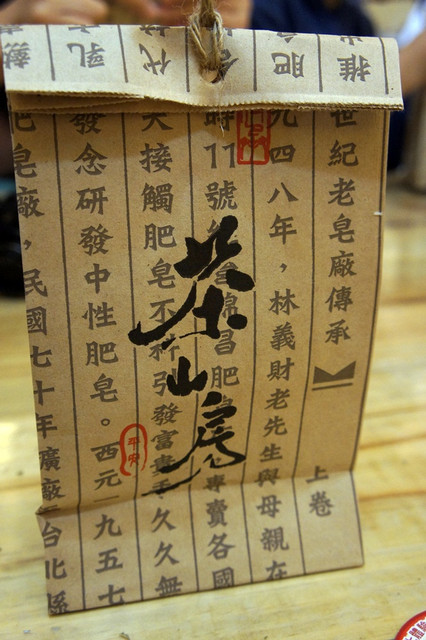 茶山房
世紀老皂廠傳承
上卷
九四八年，林義財老先生與母親在
時11號
錦昌肥
專賣各國
天接觸肥皂不
引發富
手久久無
發念研發中性肥皂。西元一九五七
皂廠，民國七十年廣廠
台北縣
平安
推
肥
各
代
乳